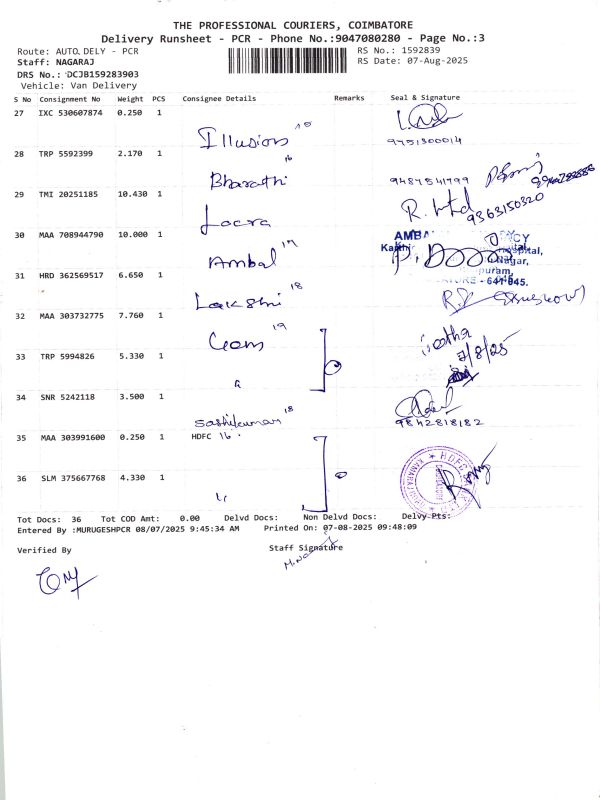 THE PROFESSIONAL COURIERS, COIMBATORE
Delivery Runsheet - PCR - Phone No.:9047080280 - Page No.:3
Route: AUTO DELY - PCR RS No.: 1592839
Staff: NAGARAJ RS Date: 07-Aug-2025
DRS No.: DCJB159283903
Vehicle: Van Delivery
S No Consignment No Weight PCS Consignee Details Remarks Seal & Signature
27 IXC 530607874 0.250 1
Illusions 15
9751300014
28 TRP 5592399 2.170 1
Bharathi 16
9487541799
29 TMI 20251185 10.430 1
9363150320
30 MAA 708944790 10.000 1
Ambal 17
AMBA
31 HRD 362569517 6.650 1
Lakshmi 18
32 MAA 303732775 7.760 1
Gem 19
Geetha
7/8/25
33 TRP 5994826 5.330 1
34 SNR 5242118 3.500 1
Sasthikumar 18
9842818182
35 MAA 303991600 0.250 1 HDFC 16
36 SLM 375667768 4.330 1
HDFC
Tot Docs: 36 Tot COD Amt: 0.00 Delvd Docs: Non Delvd Docs: Delvy Pts:
Entered By :MURUGESHPCR 08/07/2025 9:45:34 AM Printed On: 07-08-2025 09:48:09
Verified By Staff Signature